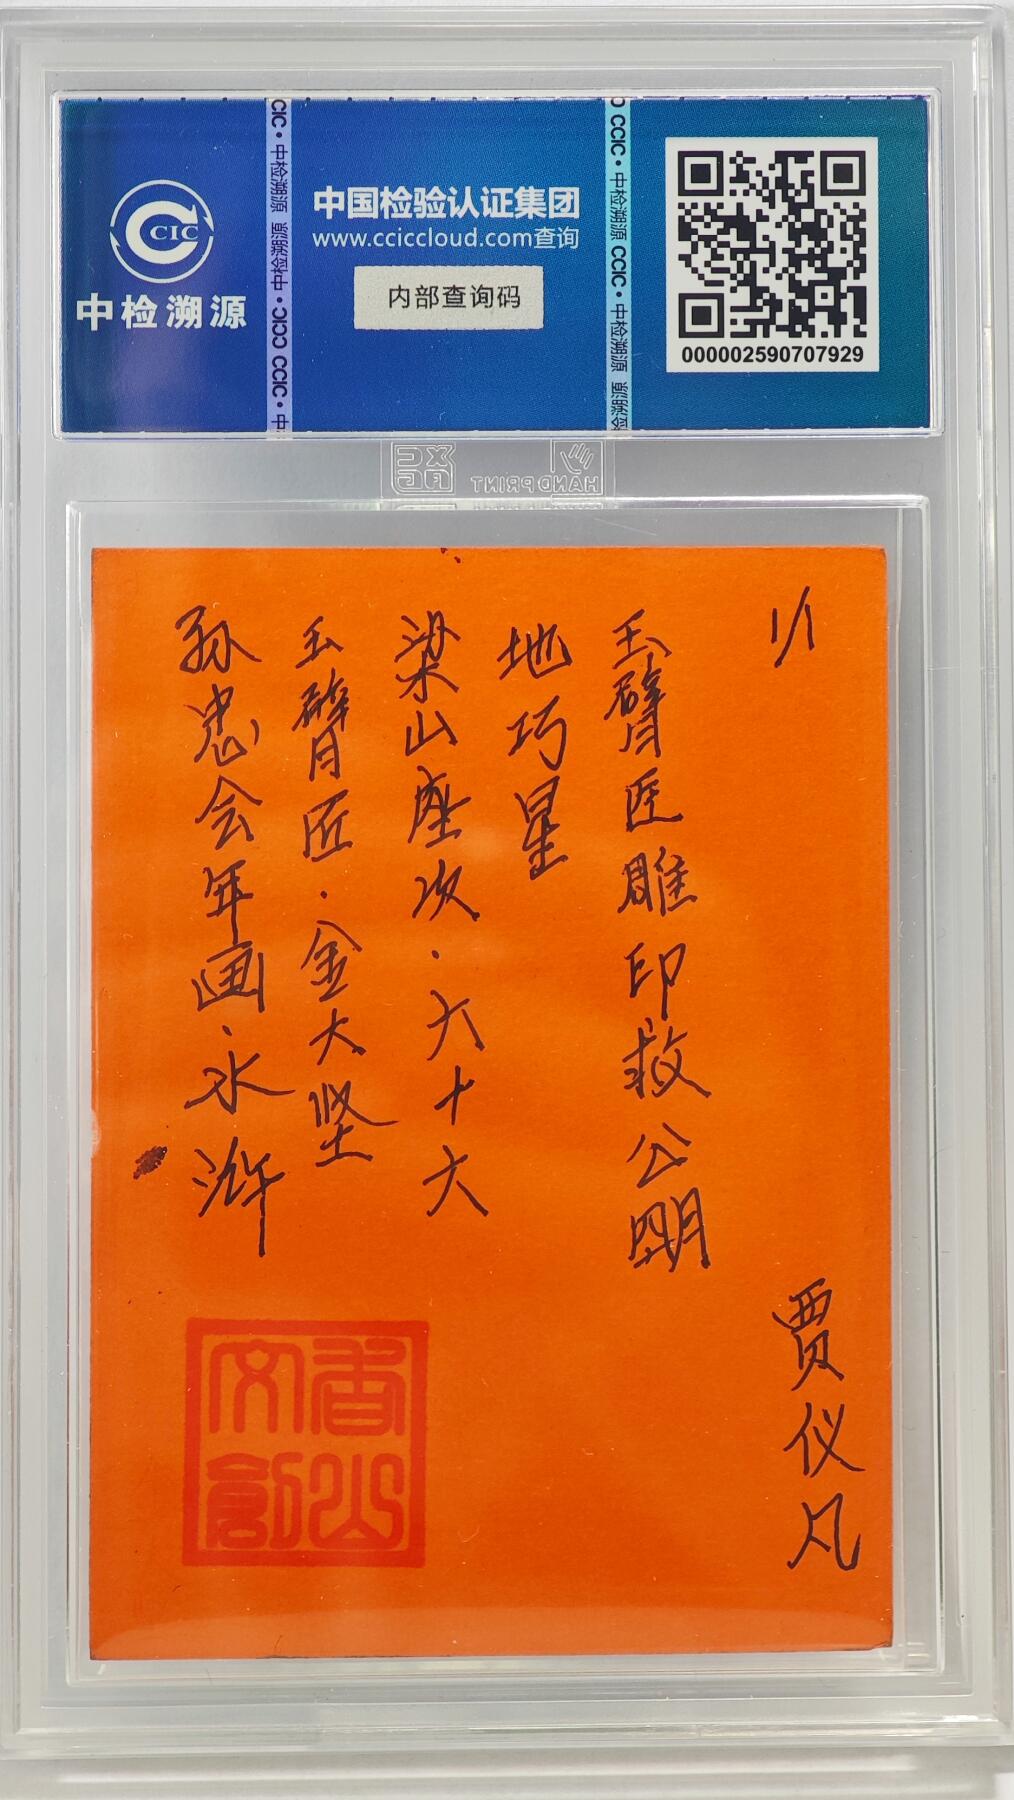 CIC
中检溯源
中国检验认证集团
www.cciccloud.com查询
内部查询码
000002590707929
CCIC·中检溯源 CCIC·中检溯源
HANDPRINT
1/1
玉臂匠雕印救公明
地巧星
梁山座次·六十六
玉臂匠·金大坚
孙忠会年画·水浒
贾仪凡
香山
文創